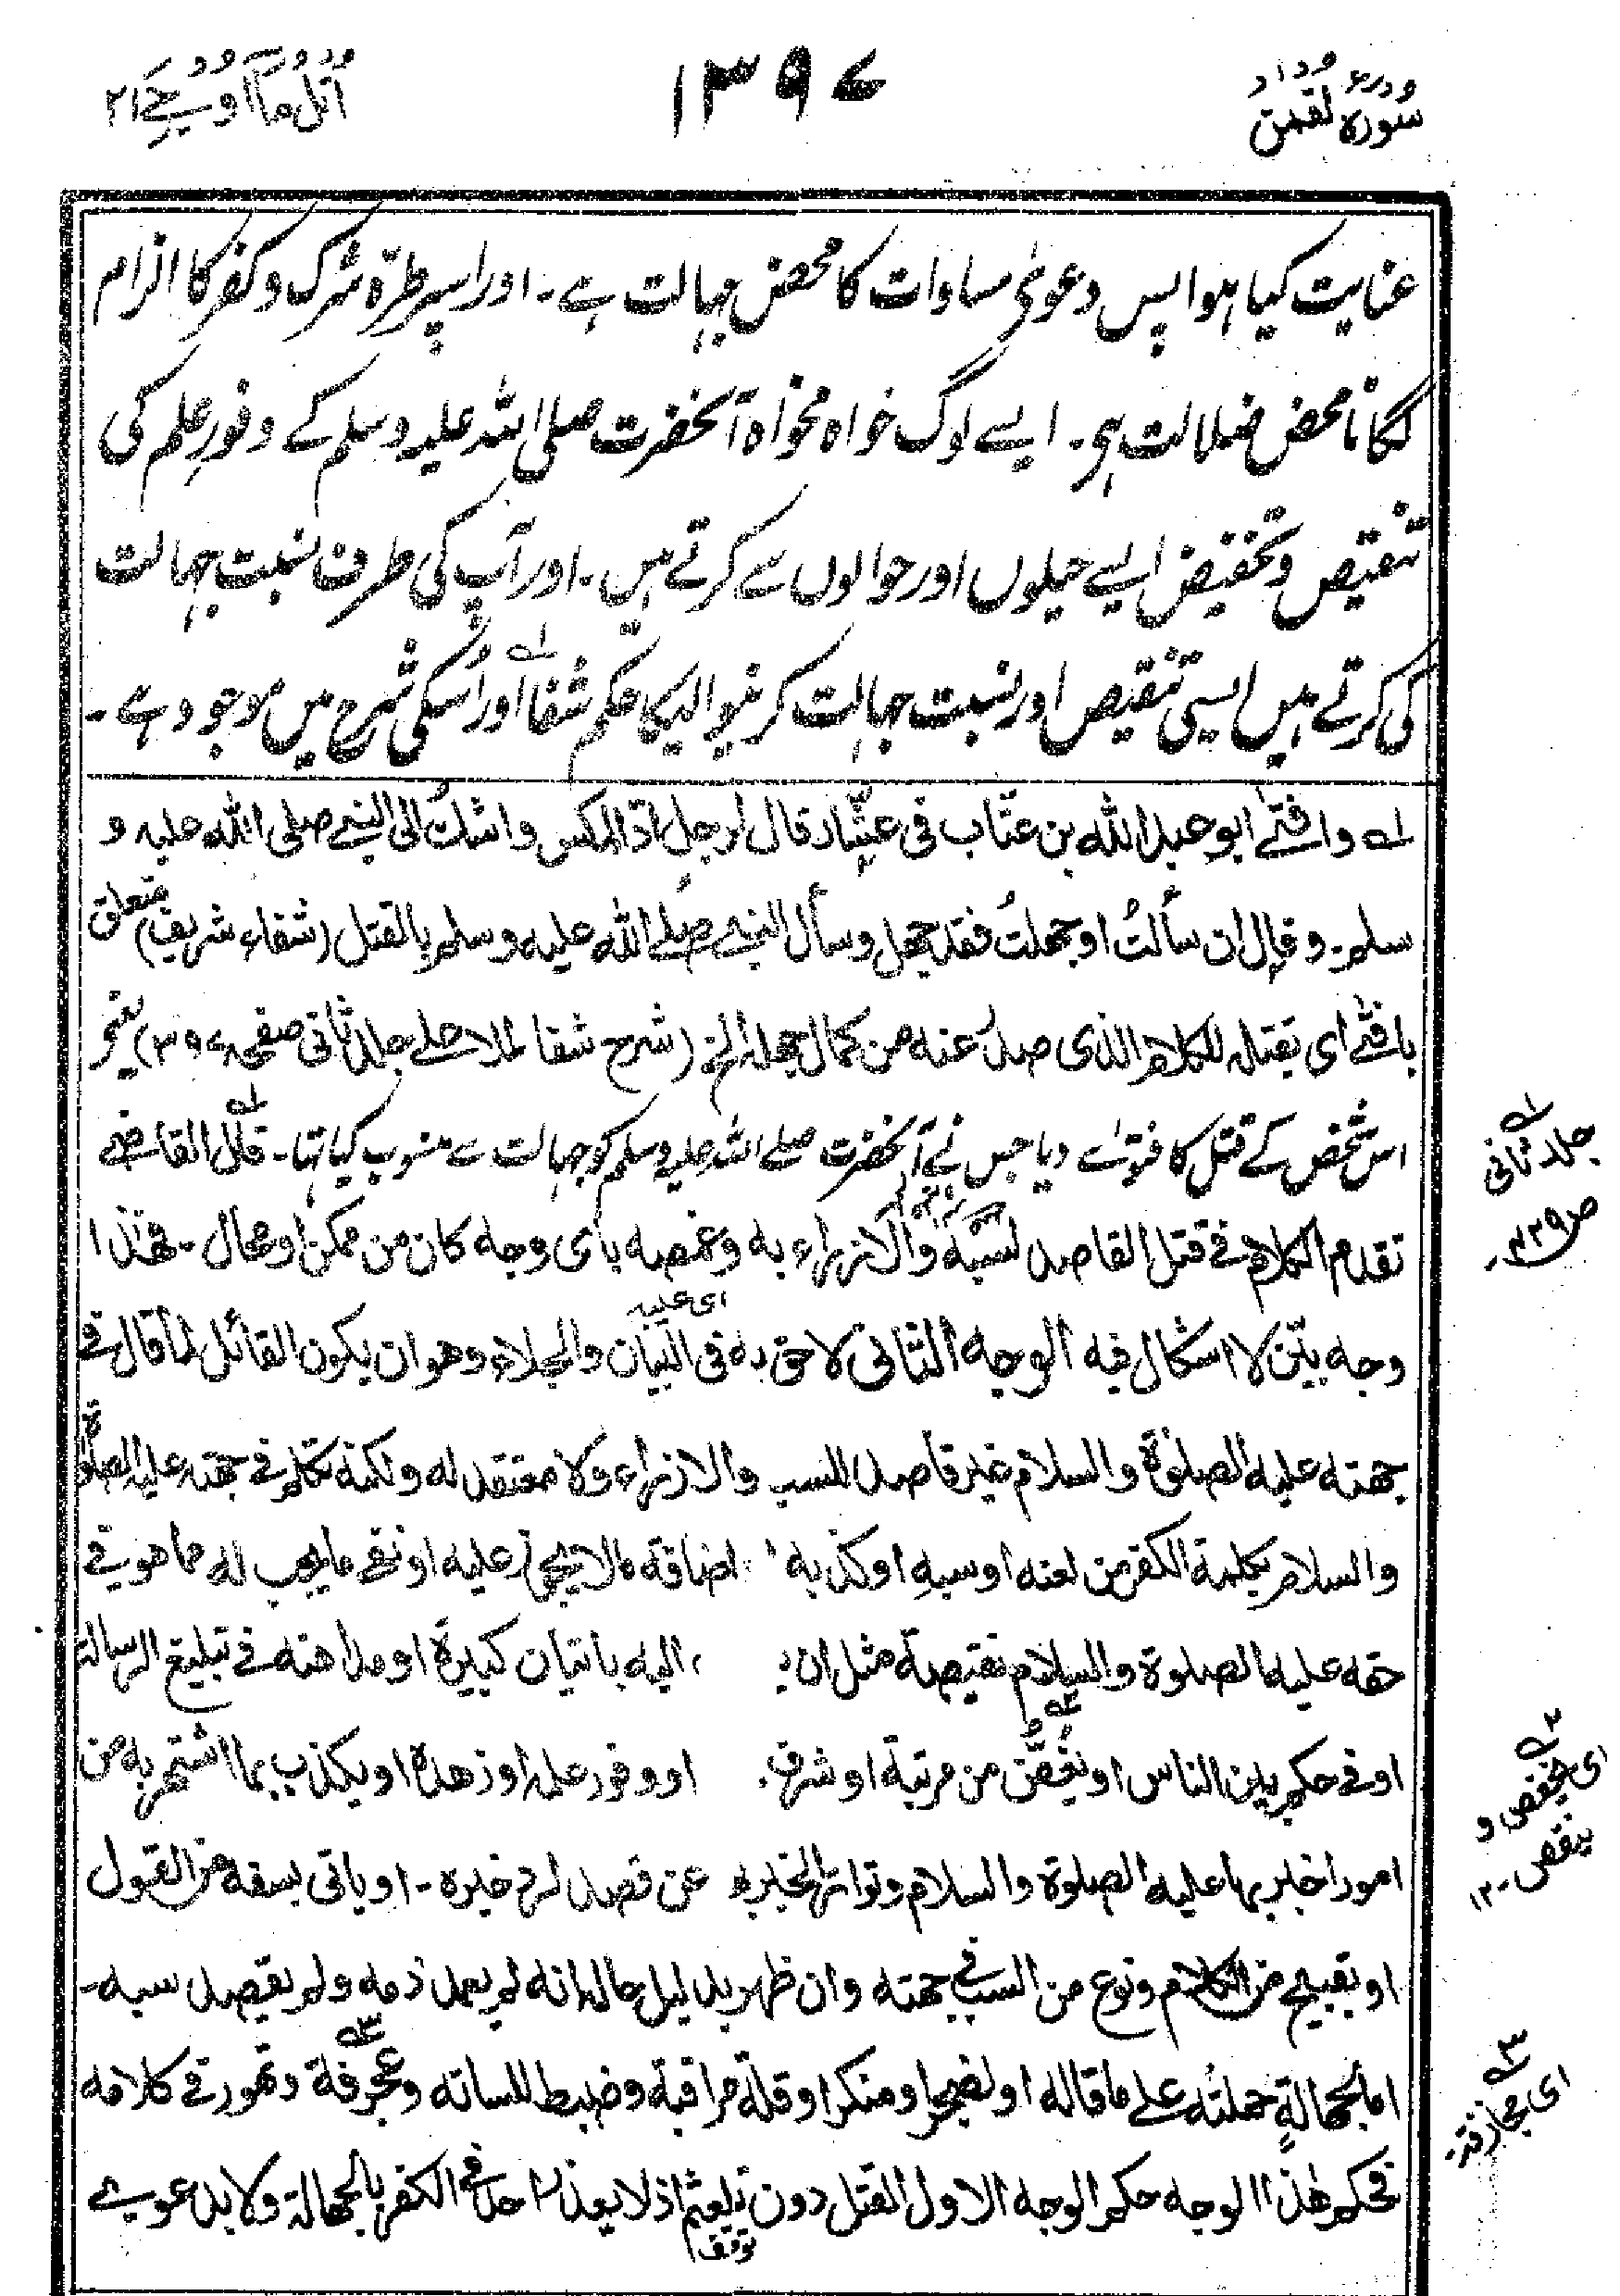 سُورۃ لقمٰن
۱۳۹۷
اُتْلُ مَآ اُوْحِیَ ۲۱
عنایت کیا ہو اپس دعویٰ مساوات کا محض جہالت ہے۔ اور اسپر طرّہ شرک وکفر کا الزام
لگانا محض ضلالت ہی۔ ایسے لوگ خواہ مخواہ آنحضرت صلی اللہ علیہ وسلم کے وفورِ علم کی
تنقیص وتخفیض ایسے حیلوں اور حوالوں سے کرتے ہیں۔ اور آپ کی طرف نسبت جہالت
کی کرتے ہیں ایسی تنقیص اور نسبت جہالت کرنیوالیکا حکم شفا ۱؎ اور اُسکی شرح میں موجود ہے۔
۱؎ وافتٰے ابو عبد الله بن عتّاب فی عشّار قال لرجل ادّ المکس واشكُ الى النبے صلى الله عليه و
سلم۔ وقال ان سألتُ او جهلتُ فقد جهل وسأل النبے صلے الله عليه وسلم بالقتل (شفاء شریف) متعلق
بافتٰے ای بقتله للكلام الذى صدر عنه من كمال جهله الخ (شرح شفا لملا علے جلد ثانی صفحہ ۳۹۷) یعنے
اس شخص کے قتل کا فتوٰے دیا جس نے آنحضرت صلے اللہ علیہ وسلم کو جہالت سے منسوب کیا تہا۔ قال ۱؎ القاضے
تقدم الكلام فے قتل القاصد لسبّه والازراء به وغمصه بأى وجه كان من ممكن او محال۔ فهٰذا
وجه بيّن لا اشكال فيه الوجه الثانى لاحق به فى البيان والجلاء وهو ان يكون القائل لما قال فے
جهته عليه الصلوٰة والسلام غير قاصد للسب والازراء ولا معتقد له ولكنه تكلم فے جهته عليه الصلوٰة
والسلام بكلمة الكفر من لعنه او سبه او تكذيبه اضافة مالا يجوز عليه او نفے ما يجب له مما هو فے
حقه عليه الصلوة والسلام نقيصة مثل ان اليه باتيان كبيرة او مداهنه فے تبليغ الرسالة
او فے حكم بين الناس او يُغُضّ ۲؎ من مرتبة او شرف او وفور علمه او زهده او يكذب بما اشتهر به من
امور اخبر بها عليه الصلوة والسلام وتواتر الخبر بها عن قصد لرد خبره۔ او ياتى بسفه من القول
او بقبيح من الكلام ونوع من السب فے جهته وان ظهر بدليل حاله انه لم يعمد ذمه ولم يقصد سبه۔
اما لجهالةٍ حملته على ما قاله او لضجر او منكر او قلة مراقبة وضبط للسانه وعجرفة ۳؎ وتهور فے كلامه
فحكم هٰذا الوجه حكم الوجه الاول القتل دون تلعثم اذ لا يعذر احد فے الكفر بالجهالة ولا بدعوے
توقف
ای عیبه
۱؎ جلد ثانی
۲؎ ای یخفض و
ینقص۔ ۱۲
۳؎ ای مجازفۃ